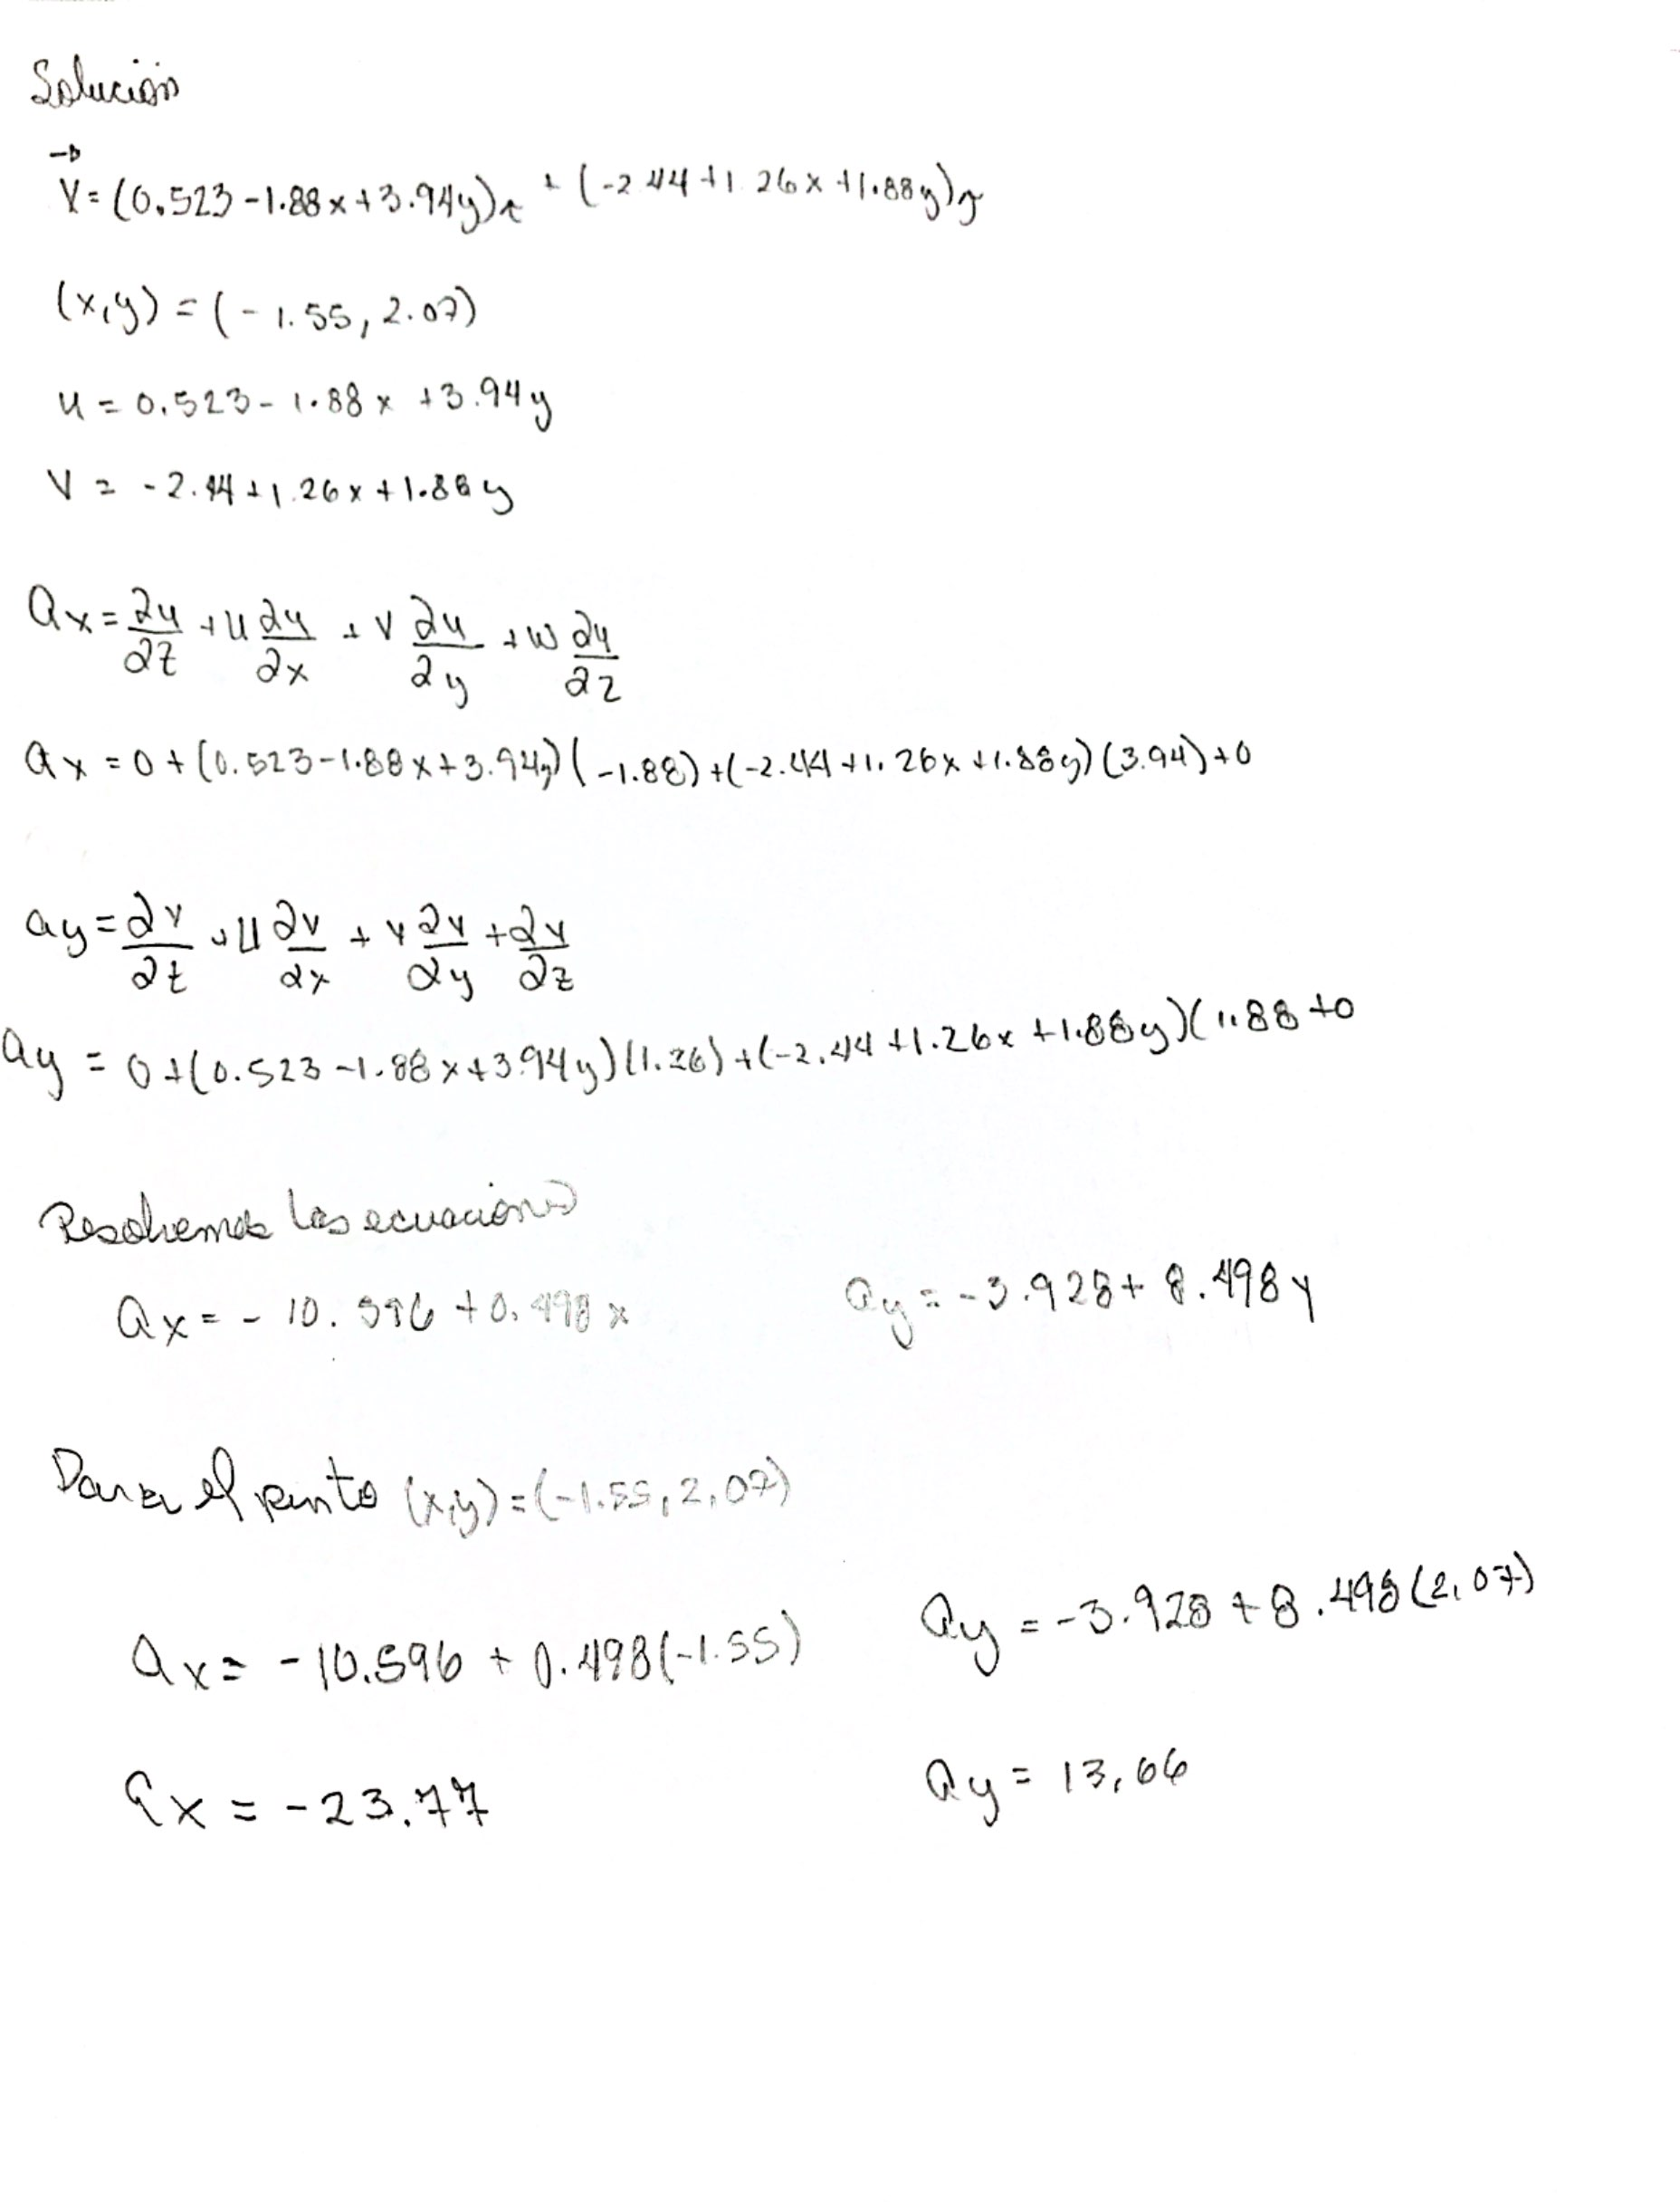 Solución
V = (0.523 - 1.88x + 3.94y)i + (-2.44 + 1.26x + 1.88y)j
(x,y) = (-1.55, 2.07)
u = 0.523 - 1.88x + 3.94y
V = -2.44 + 1.26x + 1.88y
ax = ∂u/∂t + u ∂u/∂x + v ∂u/∂y + w ∂u/∂z
ax = 0 + (0.523 - 1.88x + 3.94y)(-1.88) + (-2.44 + 1.26x + 1.88y)(3.94) + 0
ay = ∂v/∂t + u ∂v/∂x + v ∂v/∂y + ∂v/∂z
ay = 0 + (0.523 - 1.88x + 3.94y)(1.26) + (-2.44 + 1.26x + 1.88y)(1.88 + 0
Resolvemos las ecuaciones
ax = -10.596 + 0.498x ay = -3.928 + 8.498y
Para el punto (x,y) = (-1.55, 2,07)
ax = -10.596 + 0.498(-1.55) ay = -3.928 + 8.498(2,07)
ax = -23.77 ay = 13,66